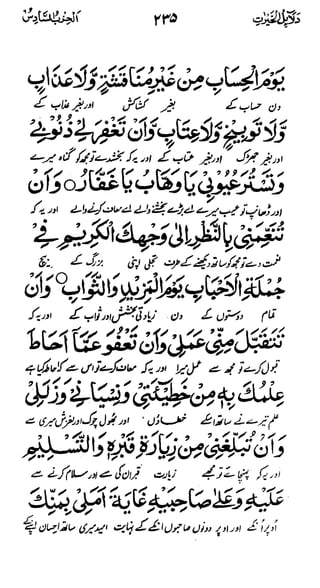 دلائل الخیرات ۲۳۵ الحزب السادس
يَوْمَ الْحِسَابِ مِنْ غَيْرِ مُنَاقَشَةٍ وَّلَا عَذَابٍ
دن حساب کے بغیر کشاکش اور بغیر عذاب کے
وَّلَا تَوْبِيْخٍ وَّلَا عِتَابٍ وَّاَنْ تَغْفِرَ لِيْ ذُنُوْبِيْ
اور بغیر جھڑکی اور بغیر عتاب کے اور یہ کہ بخشدے تو مجھ کو گناہ میرے
وَتَسْتُرَ عُيُوْبِيْ يَا وَهَّابُ يَا غَفَّارُ ○ وَاَنْ
اور ڈھانپ تو عیب میرے اے بڑے بخشنے والے اے معاف کرنے والے اور یہ کہ
تُنَعِّمَنِيْ بِالنَّظَرِ اِلٰى وَجْهِكَ الْكَرِيْمِ فِيْ
نعمت دے تو مجھ کو ساتھ دیکھنے کے طرف تجلی اپنی بزرگ کے بیچ
جُمْلَةِ الْاَحْبَابِ يَوْمَ الْمَزِيْدِ وَالثَّوَابِ ○ وَاَنْ
تمام دوستوں کے دن زیادتی بخشش اور ثواب کے اور یہ کہ
تَتَقَبَّلَ مِنِّيْ عَمَلِيْ وَاَنْ تَعْفُوَ عَمَّا اَحَاطَ
قبول کرے تو مجھ سے عمل میرا اور یہ کہ معاف کرے تو اس سے کہ احاطہ کیا ہے
عِلْمُكَ بِهٖ مِنْ خَطِيْئَتِيْ وَنِسْيَانِيْ وَزَلَلِيْ
علم تیرے نے ساتھ اسکے خطاؤں اور بھول چوک اور لغزش میری سے
وَاَنْ تُبَلِّغَنِيْ مِنْ زِيَارَةِ قَبْرِهٖ وَالتَّسْلِيْمِ
اور یہ کہ پہنچائے تو مجھے زیارت قبر ان کی سے اور سلام کرنے سے
عَلَيْهِ وَعَلٰى صَاحِبَيْهِ غَايَةَ اَمَلِيْ بِمَنِّكَ
اوپر انکے اور اوپر دونوں صاحبوں انکے کے نہایت امید میری ساتھ احسان اپنے کے